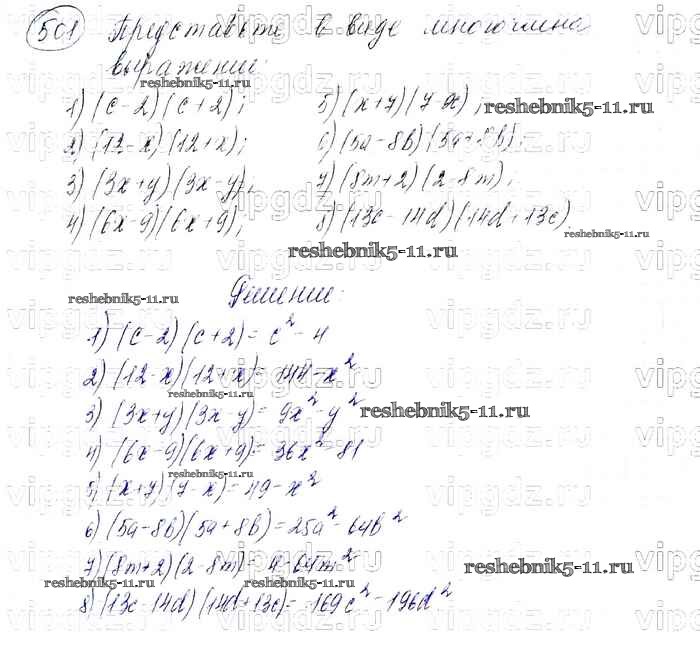 501 Представьте в виде многочлена
выражение:
1) (c-2)(c+2); 5) (x+7)(7-x);
2) (12-x)(12+x); 6) (5a-8b)(5a+8b);
3) (3x+y)(3x-y); 7) (8m+2)(2-8m);
4) (6x-9)(6x+9); 8) (13c-14d)(14d+13c).
Решение:
1) (c-2)(c+2)= c²-4
2) (12-x)(12+x)= 144-x²
3) (3x+y)(3x-y)= 9x²-y²
4) (6x-9)(6x+9)= 36x²-81
5) (x+7)(7-x)=49-x²
6) (5a-8b)(5a+8b)=25a²-64b²
7) (8m+2)(2-8m)=4-64m²
8) (13c-14d)(14d+13c)= 169c²-196d²
reshebnik5-11.ru
reshebnik5-11.ru
reshebnik5-11.ru
reshebnik5-11.ru
reshebnik5-11.ru
reshebnik5-11.ru
reshebnik5-11.ru
reshebnik5-11.ru
reshebnik5-11.ru
reshebnik5-11.ru
vipgdz.ru